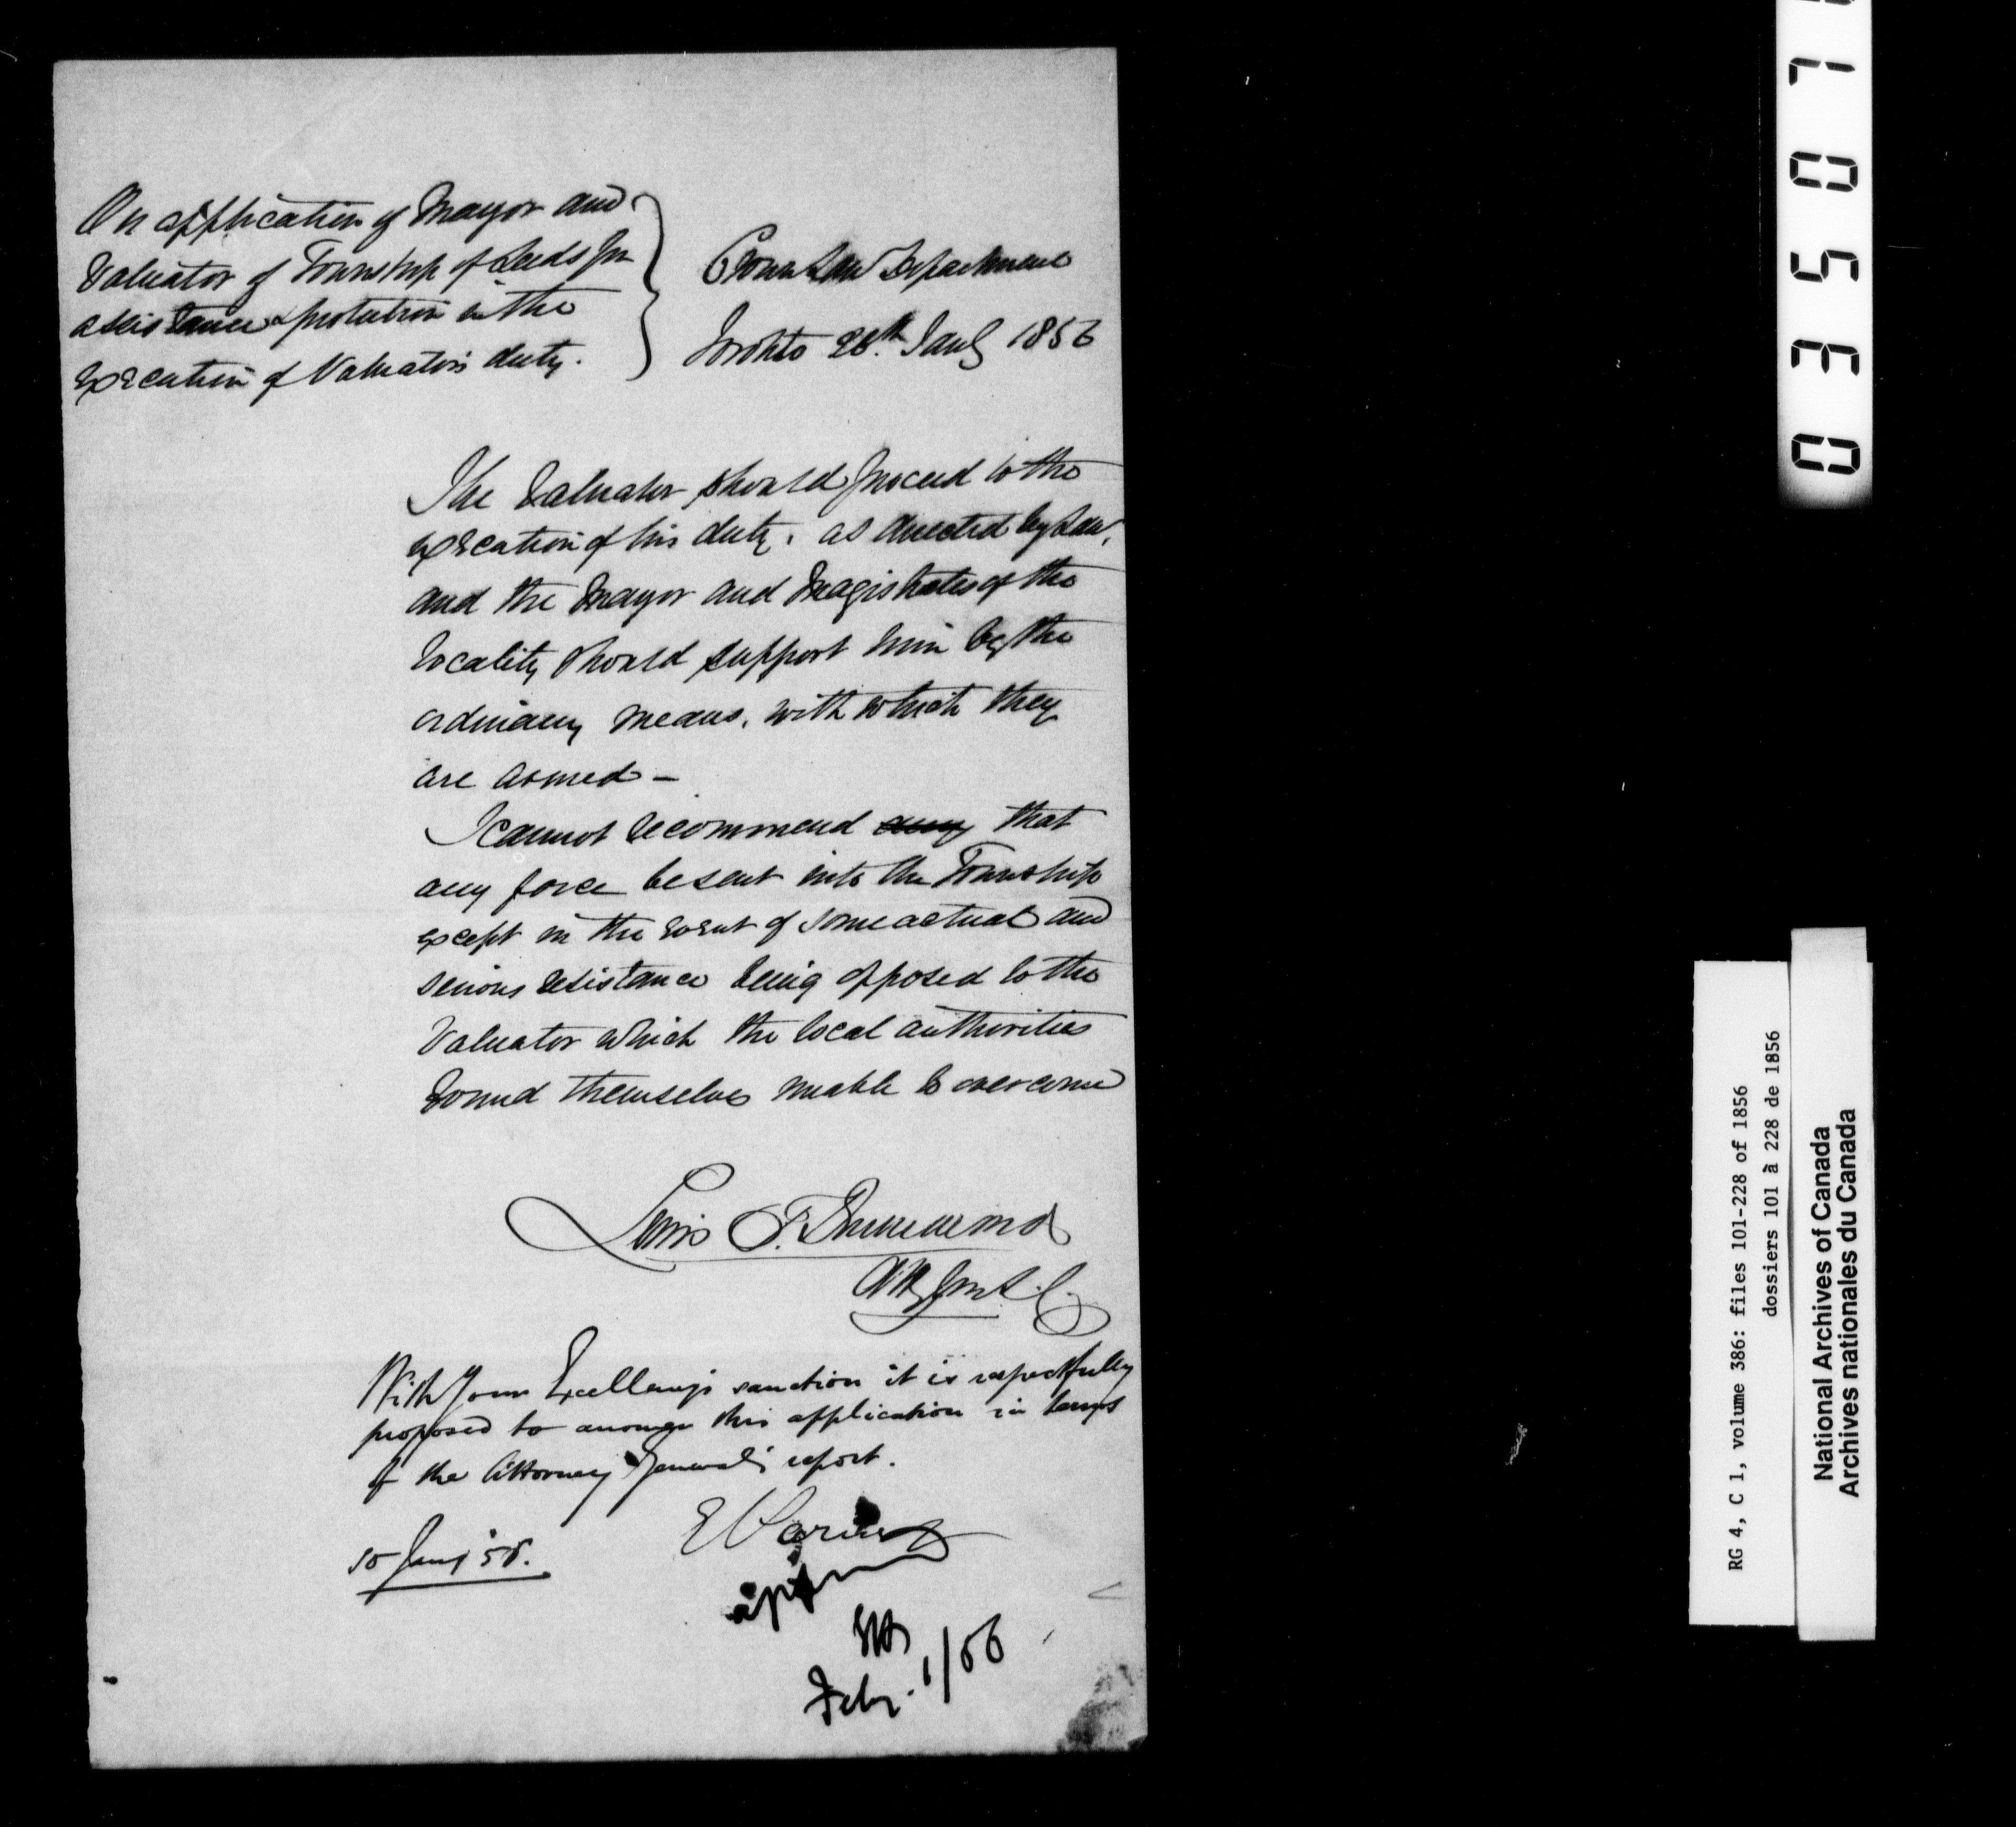 On application of Mayor and
Valuator of Township of Leeds for
assistance & protection in the
execution of Valuator's duty.
Crown Law Department
Toronto 28th Jany 1856
The Valuator should proceed to the
execution of his duty, as directed by Law,
and the Mayor and Magistrates of the
locality should support him by the
ordinary means, with which they
are armed –
I cannot recommend any that
any force be sent into the Township
except in the event of some actual and
serious resistance being opposed to the
Valuator which the local authorities
found themselves unable to overcome
Lewis T. Drummond
Atty Gen L. C.
With Your Excellency's sanction it is respectfully
proposed to answer this application in terms
of the Attorney General's report.
Jany
E Parent
Feby. 1/56
03507
RG 4, C 1, volume 386: files 101-228 of 1856
dossiers 101 à 228 de 1856
National Archives of Canada
Archives nationales du Canada